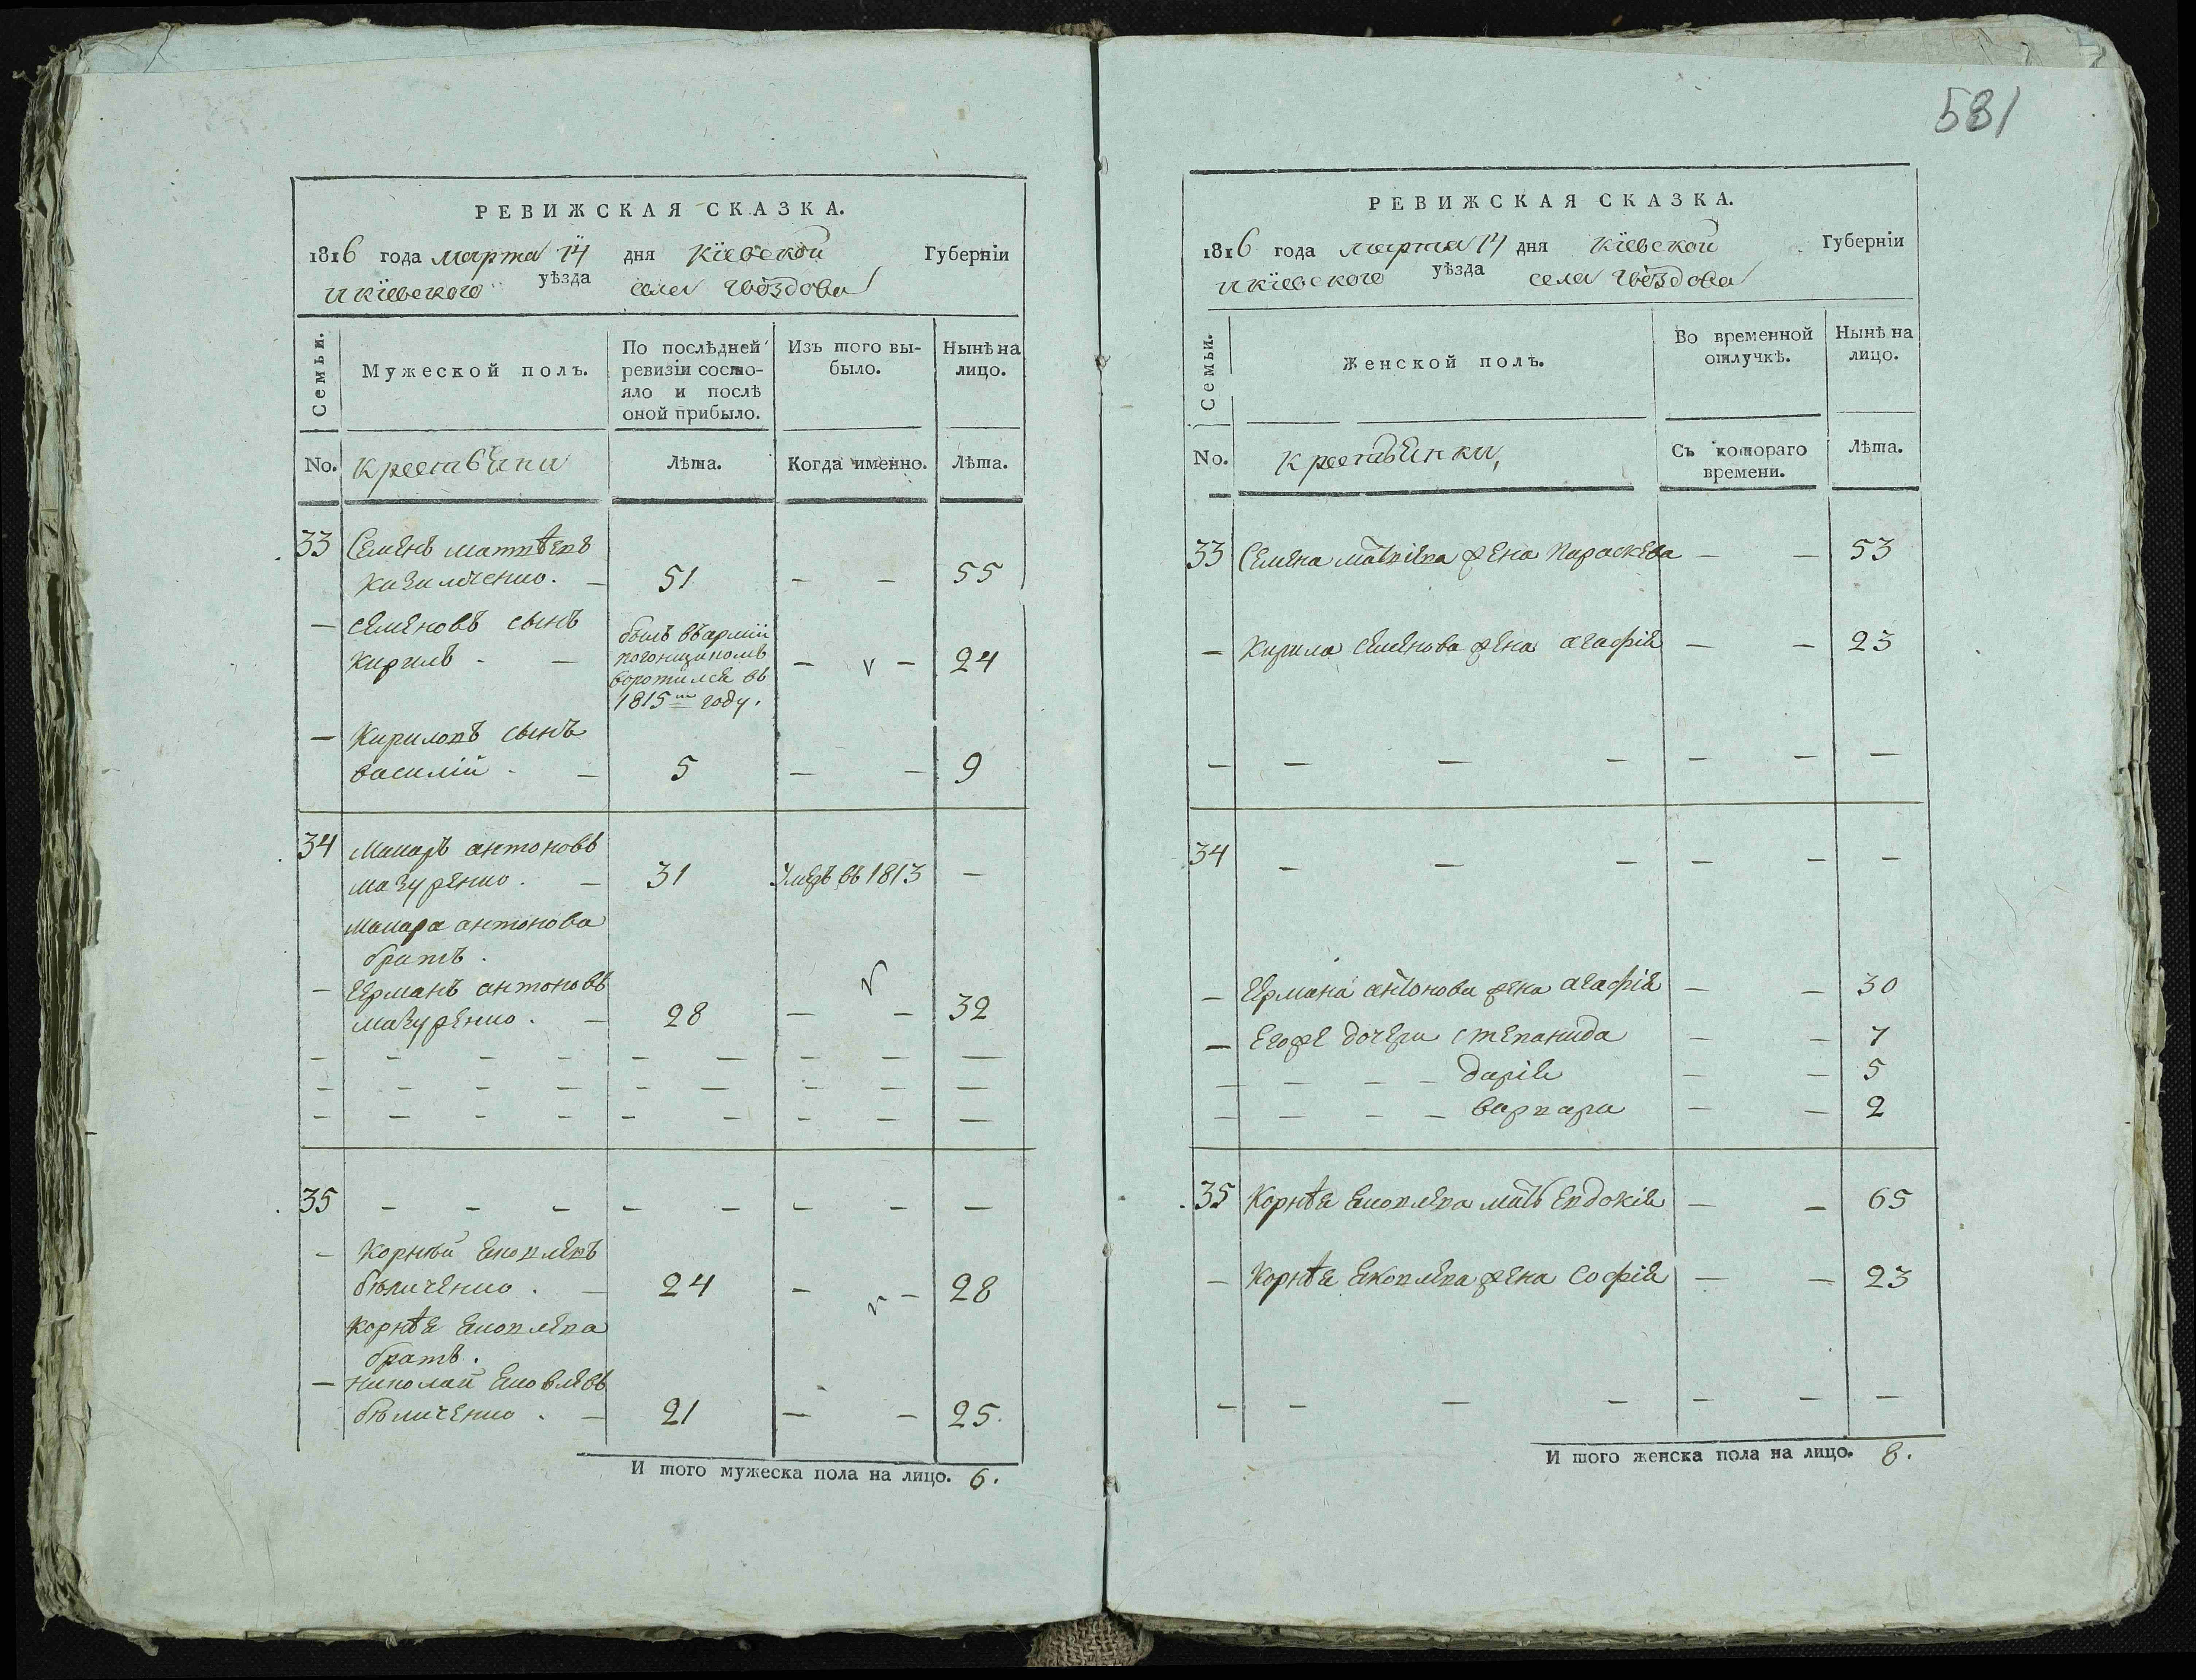 581
РЕВИЖСКАЯ СКАЗКА.
1816 года марта 14 дня Кіевской Губерніи
и кіевского уѣзда села Гвоздова
Семьи.
Мужеской полъ.
По послѣдней ревизіи состояло и послѣ оной прибыло.
Изъ того выбыло.
Нынѣ на лицо.
No. Крестьяни Лѣта. Когда именно. Лѣта.
33 Семенъ матвѣевъ
51 — — 55
— Семеновъ сынъ
былъ въ армии
Кирилъ — погонщикомъ — v — 24
воротился въ
1815м году.
— Кириловъ сынъ
василій — 5 — — 9
34 Макаръ антоновъ
мазуренко. — 31 Умеръ въ 1813 —
Макара антонова
братъ.
— Ерманъ антоновъ
мазуренко. — 28 — — 32
35 — — — — — — — —
— Корнѣй яковлевъ
бѣличенко. — 24 — — 28
Корнѣя яковлева
братъ.
— николай яковлевъ
бѣличенко. — 21 — — 25.
И того мужеска пола на лицо. 6.
РЕВИЖСКАЯ СКАЗКА.
1816 года марта 14 дня кіевской Губерніи
и кіевского уѣзда села Гвоздова
Семьи.
Женской полъ.
Во временной отлучкѣ.
Нынѣ на лицо.
No. Крестьянки, Съ котораго времени. Лѣта.
33 Семена матвіева жена Параскева — — 53
— Кирила семенова жена агафія — — 23
— — — — — — —
34 — — — — — —
— Ермана антонова жена агафія — — 30
— Егоже дочери степанида — — 7
— — — — дарія — — 5
— — — — варвара — — 2
35 Корнѣя яковлева мать Евдокія — — 65
— Корнѣя яковлева жена Софія — — 23
— — — — — — —
И того женска пола на лицо. 8.